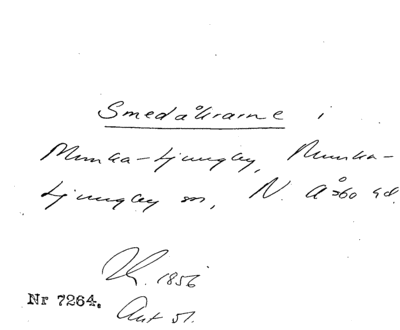 Smedåkrarne i
Munka-Ljungby, Munka-
Ljungby sn, N. Åsbo hd.
1856
Nr 7264. Akt 51.